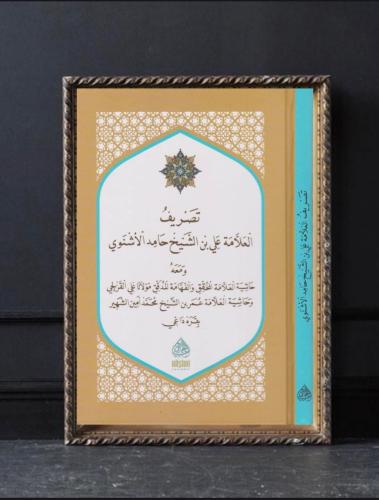 تَصْرِيفُ
العَلَّامَة عَلِي بْن الشَّيْخ حَامِد الأُشْنَوِي
وَمَعَهُ
حَاشِيَة العَلَّامَة المُحَقِّق وَالفَهَّامَة المُدَقِّق مَوْلَانَا عَلِي القِزِلْجِي
وَحَاشِيَة العَلَّامَة عُمَر بْن الشَّيْخ مُحَمَّد أَمِين الشَّهِير
بِقَرَه دَاغِي
تَصْرِيفُ العَلَّامَة عَلِي بْن الشَّيْخ حَامِد الأُشْنَوِي